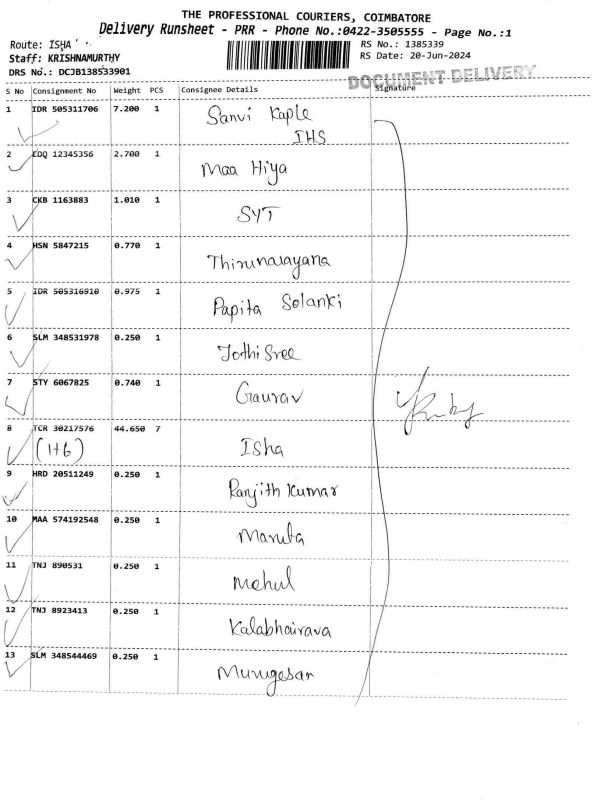 THE PROFESSIONAL COURIERS, COIMBATORE
Delivery Runsheet - PRR - Phone No.:0422-3505555 - Page No.:1
Route: ISHA
RS No.: 1385339
Staff: KRISHNAMURTHY
RS Date: 20-Jun-2024
DRS No.: DCJB138533901
DOCUMENT DELIVERY
S No Consignment No Weight PCS Consignee Details Signature
1 IDR 505311706 7.200 1 Sanvi Kaple
IHS
2 EDQ 12345356 2.700 1 Maa Hiya
3 CKB 1163883 1.010 1 SYT
4 HSN 5847215 0.770 1 Thirunarayana
5 IDR 505316910 0.975 1 Papita Solanki
6 SLM 348531978 0.250 1 Jothi Sree
7 STY 6067825 0.740 1 Gaurav
8 TCR 30217576 44.650 7 Isha
(1+6)
9 HRD 20511249 0.250 1 Ranjith Kumar
10 MAA 574192548 0.250 1 Maruta
11 TNJ 890531 0.250 1 Mehul
12 TNJ 8923413 0.250 1 Kalabhairava
13 SLM 348544469 0.250 1 Murugesan